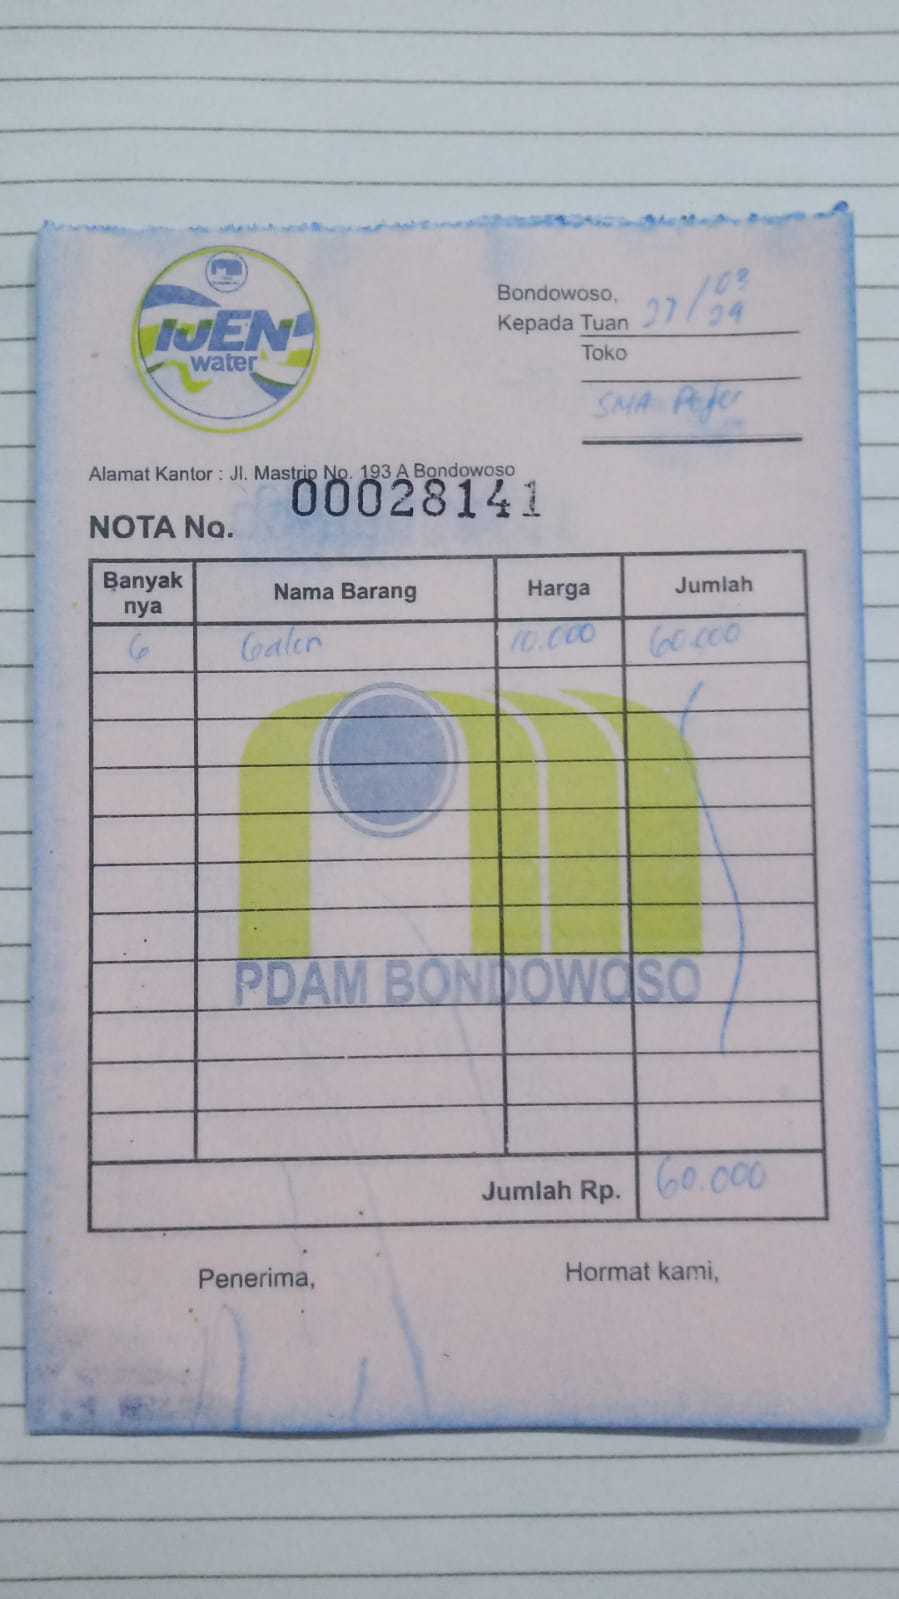 IJEN
water
Bondowoso, 27/03
Kepada Tuan
Toko
SMA
Alamat Kantor : Jl. Mastrip No. 193 A Bondowoso
NOTA No. 00028141
Banyak nya Nama Barang Harga Jumlah
6 Galon 10.000 60.000
PDAM BONDOWOSO
Jumlah Rp. 60.000
Penerima, Hormat kami,